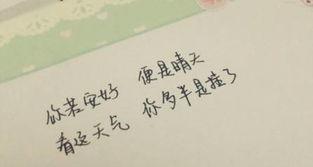 你若安好 便是晴天
看这天气 你多半是挂了